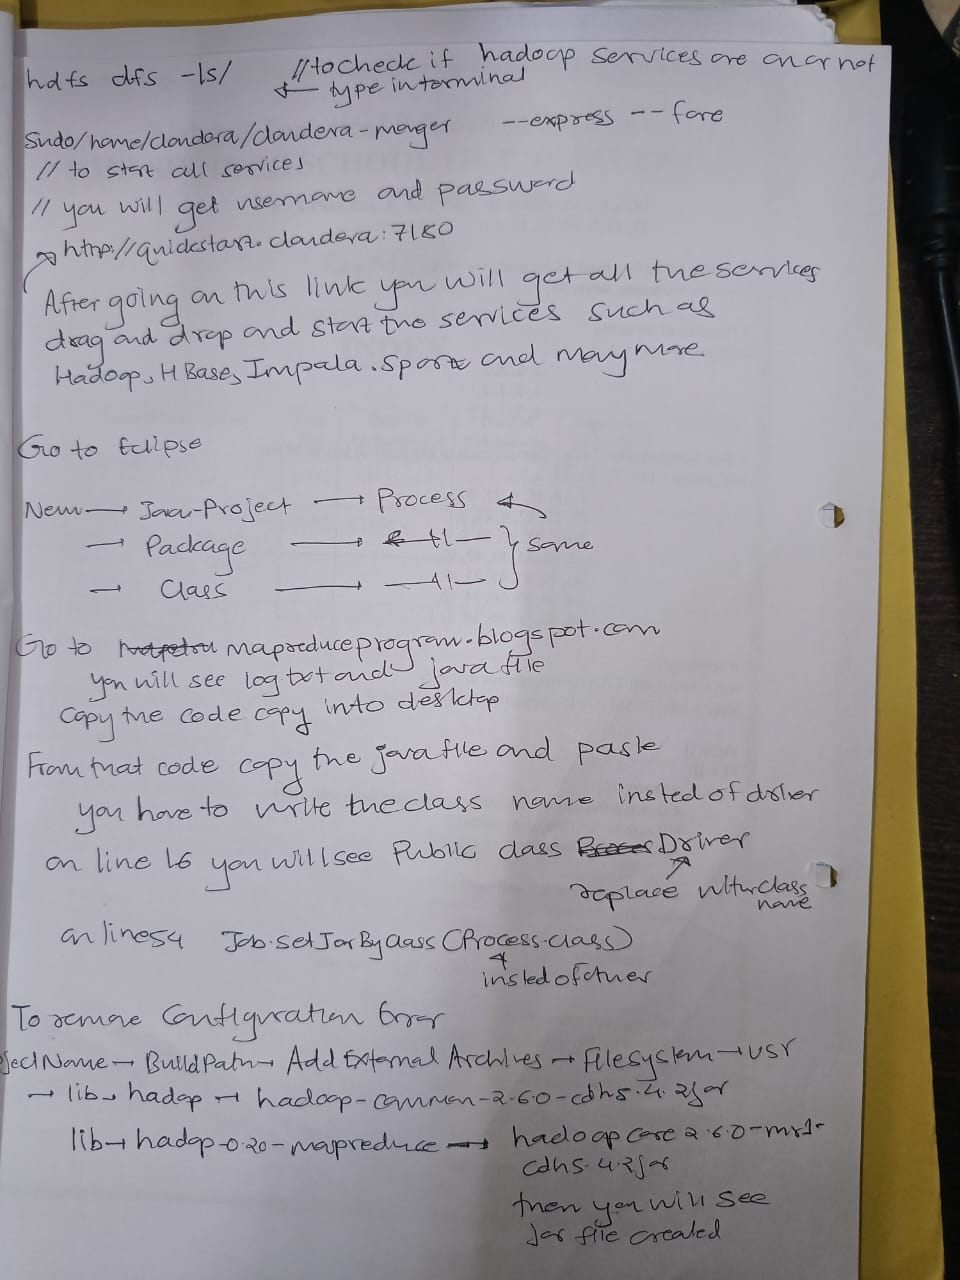 hdfs dfs -ls/ //to check if hadoop services are on or not
← type in terminal
Sudo/home/cloudera/cloudera-manger --express --force
// to start all services
// you will get username and password
http://quickstart.cloudera:7180
After going on this link you will get all the services
drag and drop and start the services such as
Hadoop, H Base, Impala, Spark and many more
Go to Eclipse
New → Java-Project → Process
→ Package → —11— } same
→ Class → —11—
Go to mapreduceprogram.blogspot.com
you will see log txt and java file
Copy the code copy into desktop
From that code copy the java file and paste
you have to write the class name insted of driver
on line 16 you will see Public class Driver
replace with class
name
on line 54 Job.setJarByClass (Process.class)
insted of
To remove Configuration Error
jectName → BuildPath → Add External Archives → filesystem → usr
→ lib → hadop → hadoop-common-2-6.0-cdh5.4.2jar
lib → hadop-0.20-mapreduce → hadoop core 2.6.0-mr1-
cdh5.4.2jar
then you will see
Jar file created